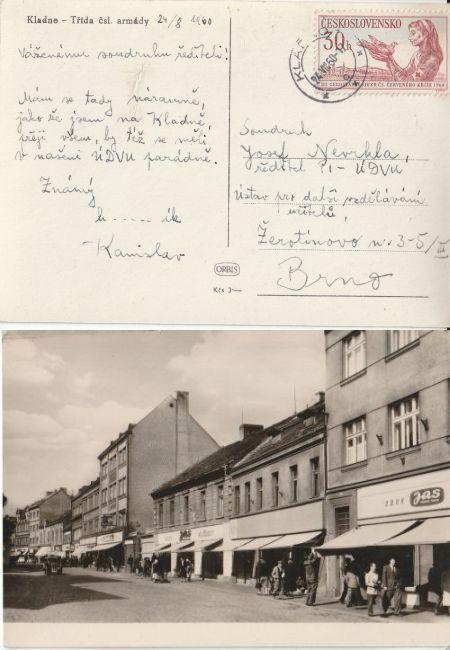 Kladno – Třída čsl. armády 24/8 1960
Váženému soudruhu řediteli!
Mám se tady náramně,
jako že jsem na Kladně,
přeji všem, by též se měli
v našení ÚDVU parádně.
Známý
h.....ík
Kanislav
ČESKOSLOVENSKO
30h
KLADNO
Soudruh
Josef Nevrhla,
ředitel
ÚDVU
Ústav pro další vzdělávání
učitelů,
Žerotínovo n. 3-5/II
Brno
ORBIS
Kčs 3·–
OBUV jas